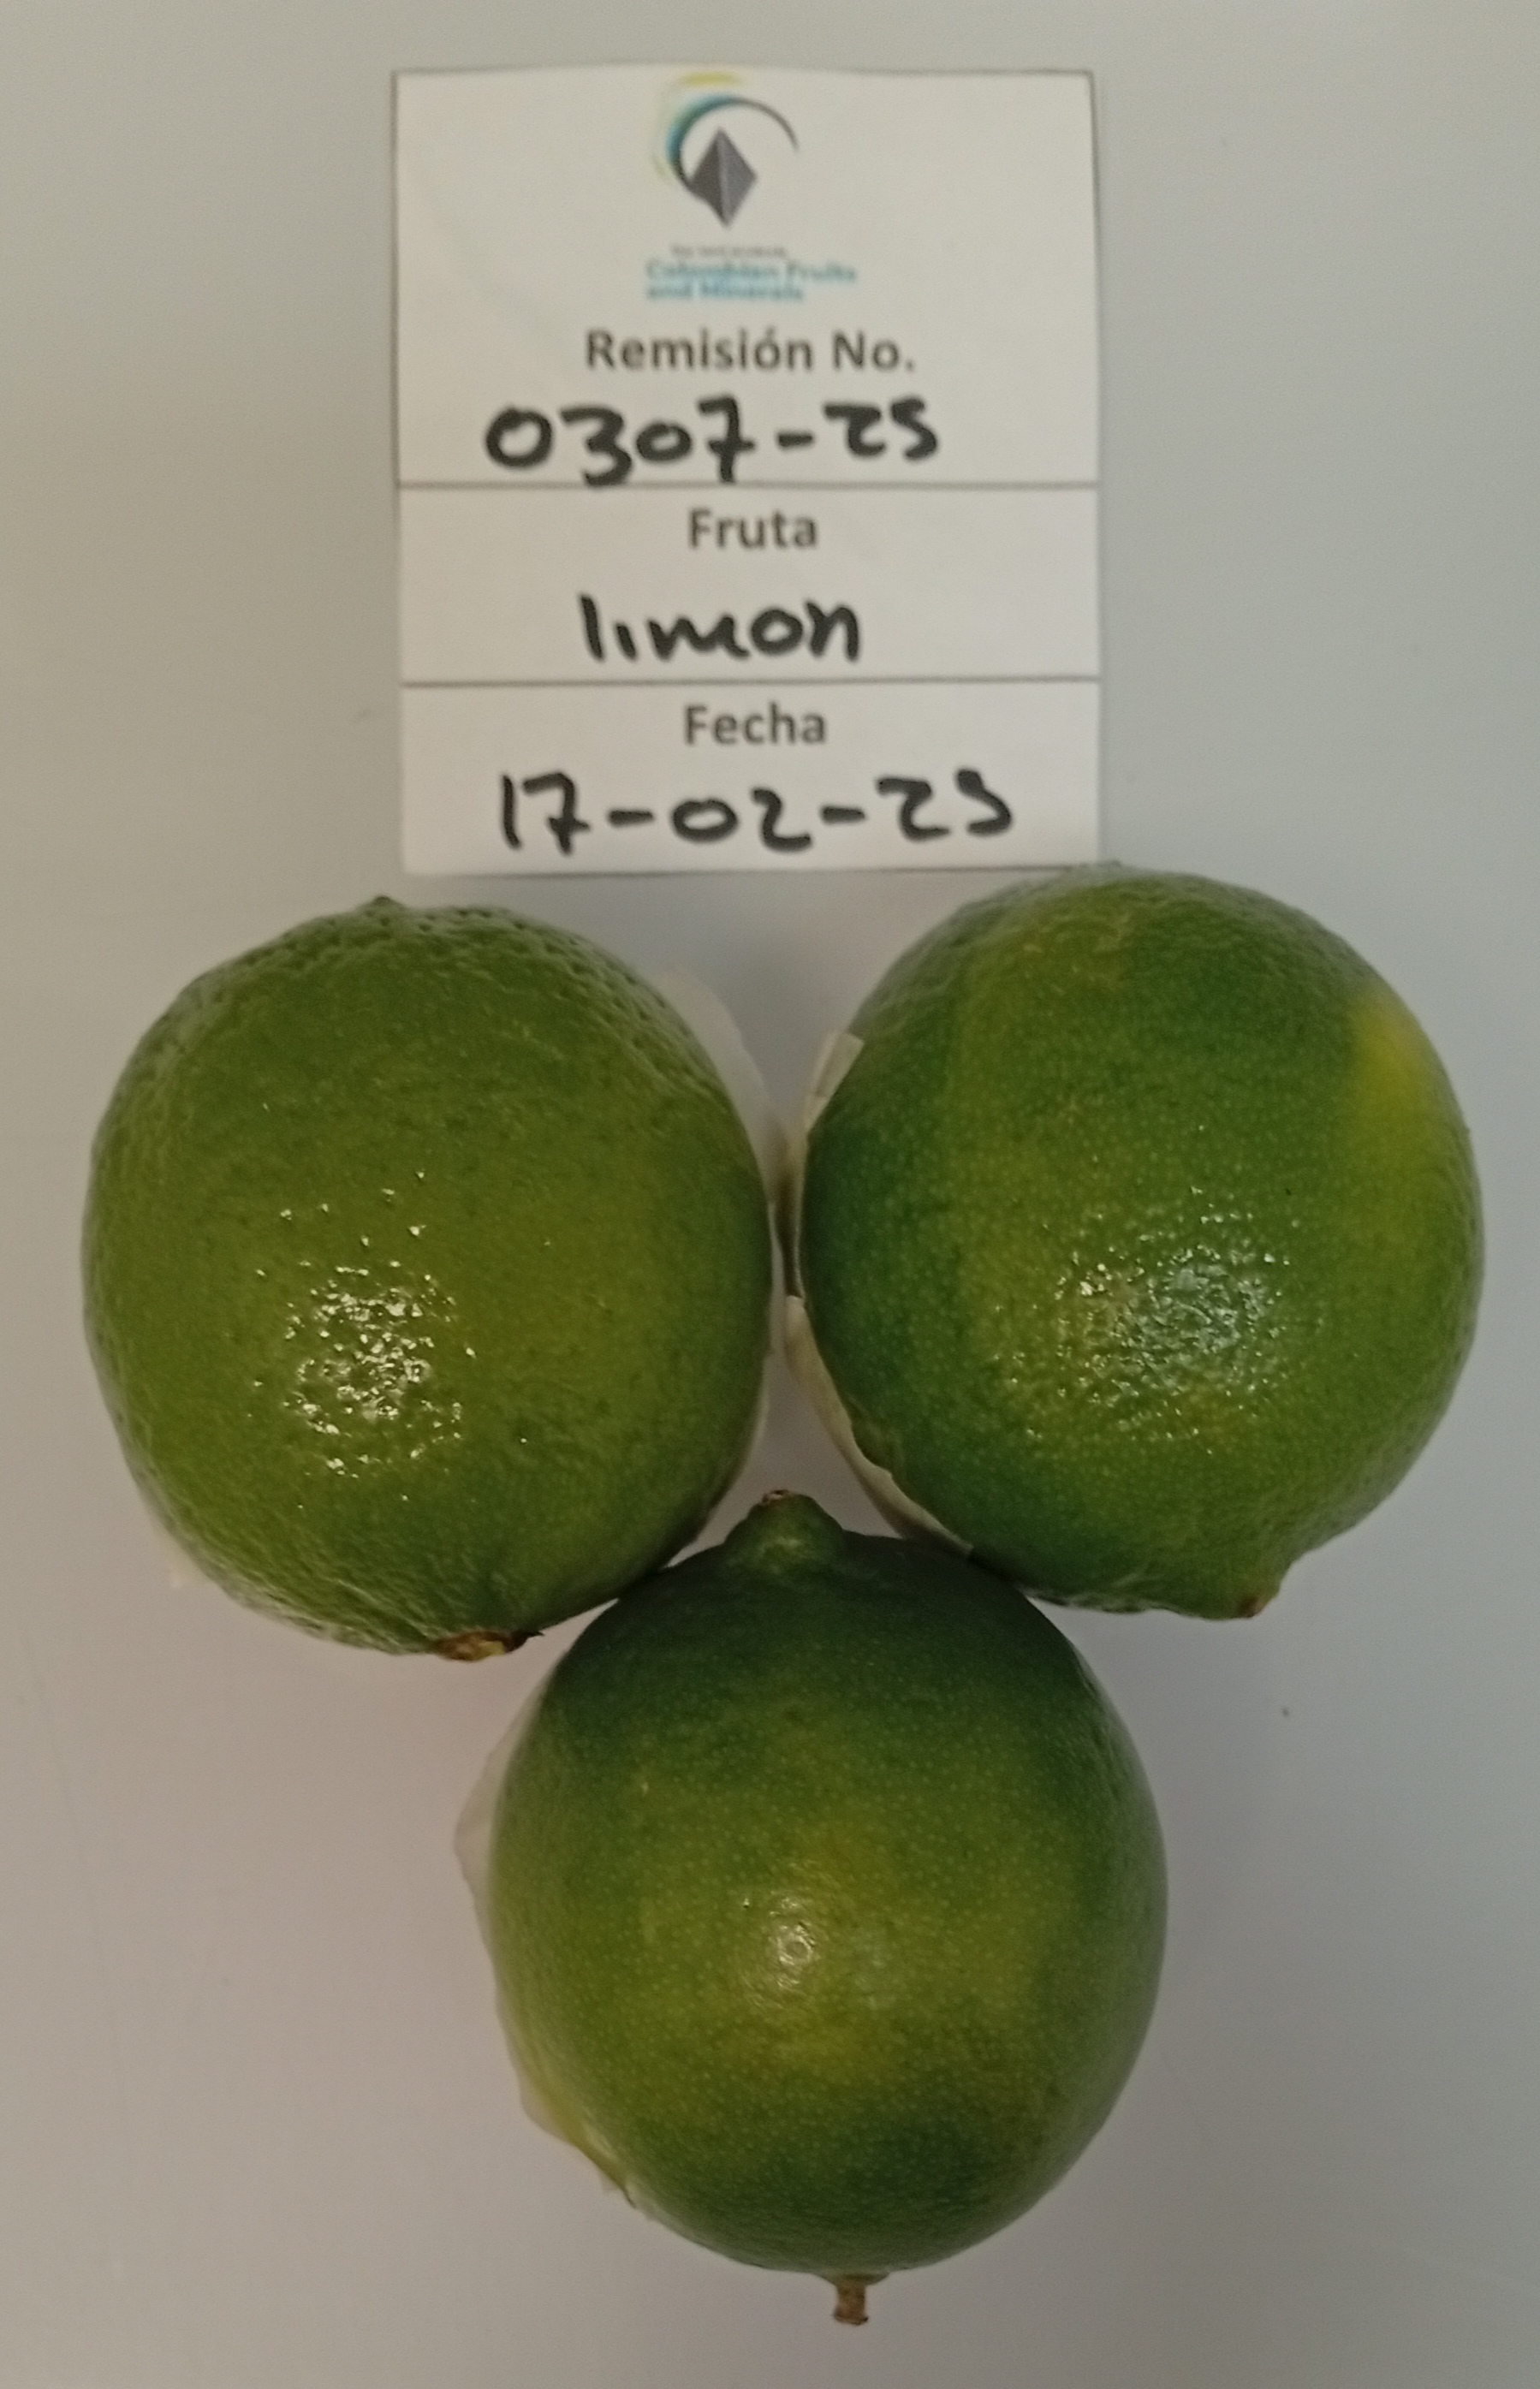 Colombian Fruits
and Minerals
Remisión No.
0307-25
Fruta
limon
Fecha
17-02-25